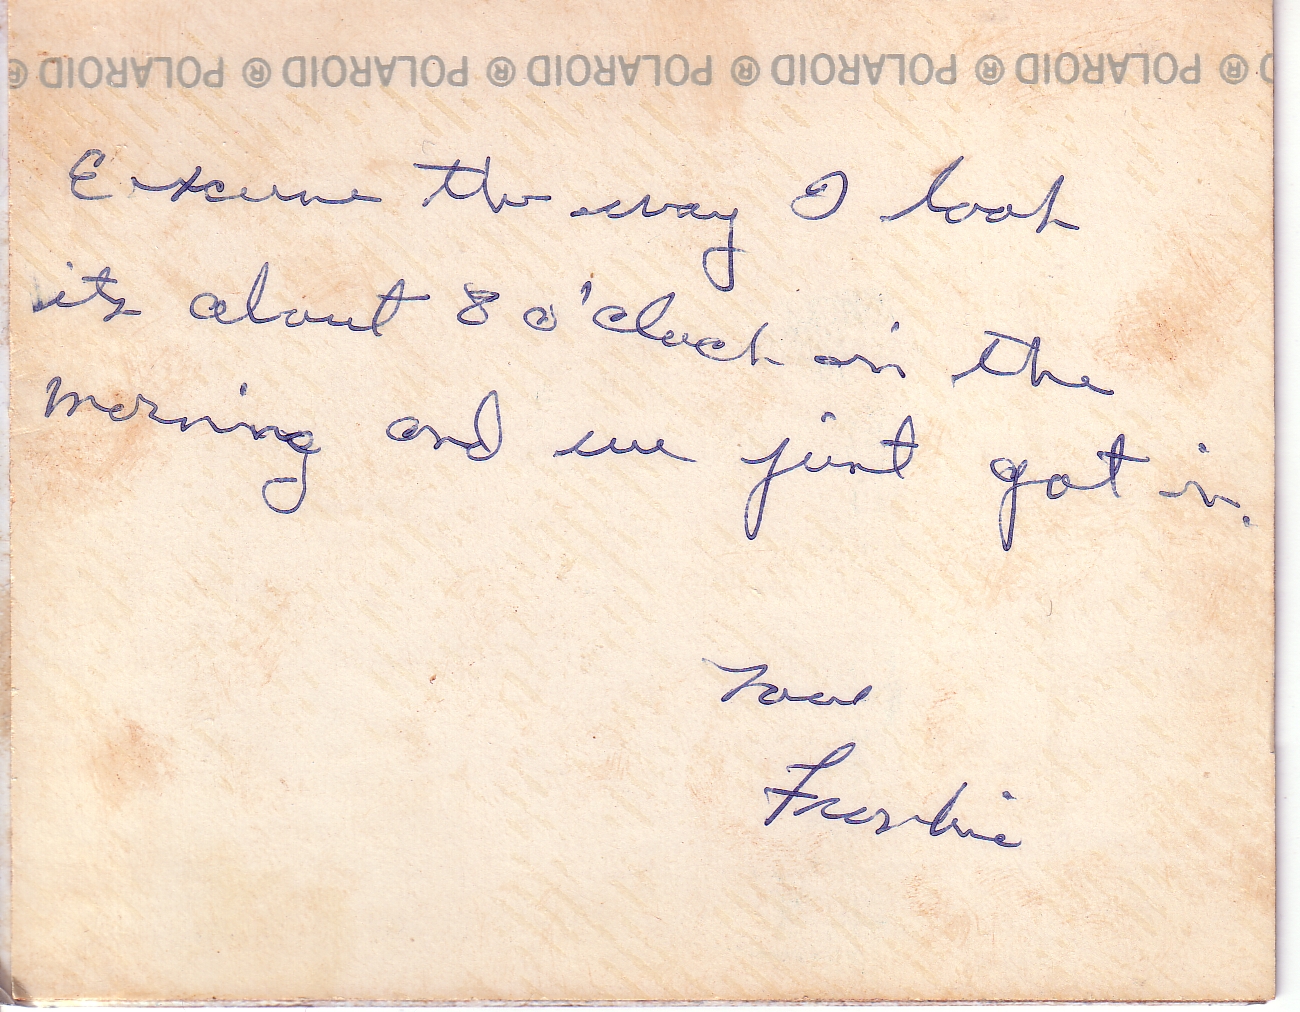 ® POLAROID ® POLAROID ® POLAROID ® POLAROID ® POLAROID ®
Excuse the way I look
its about 8 o'clock in the
morning and we just got in.
Love
Frankie